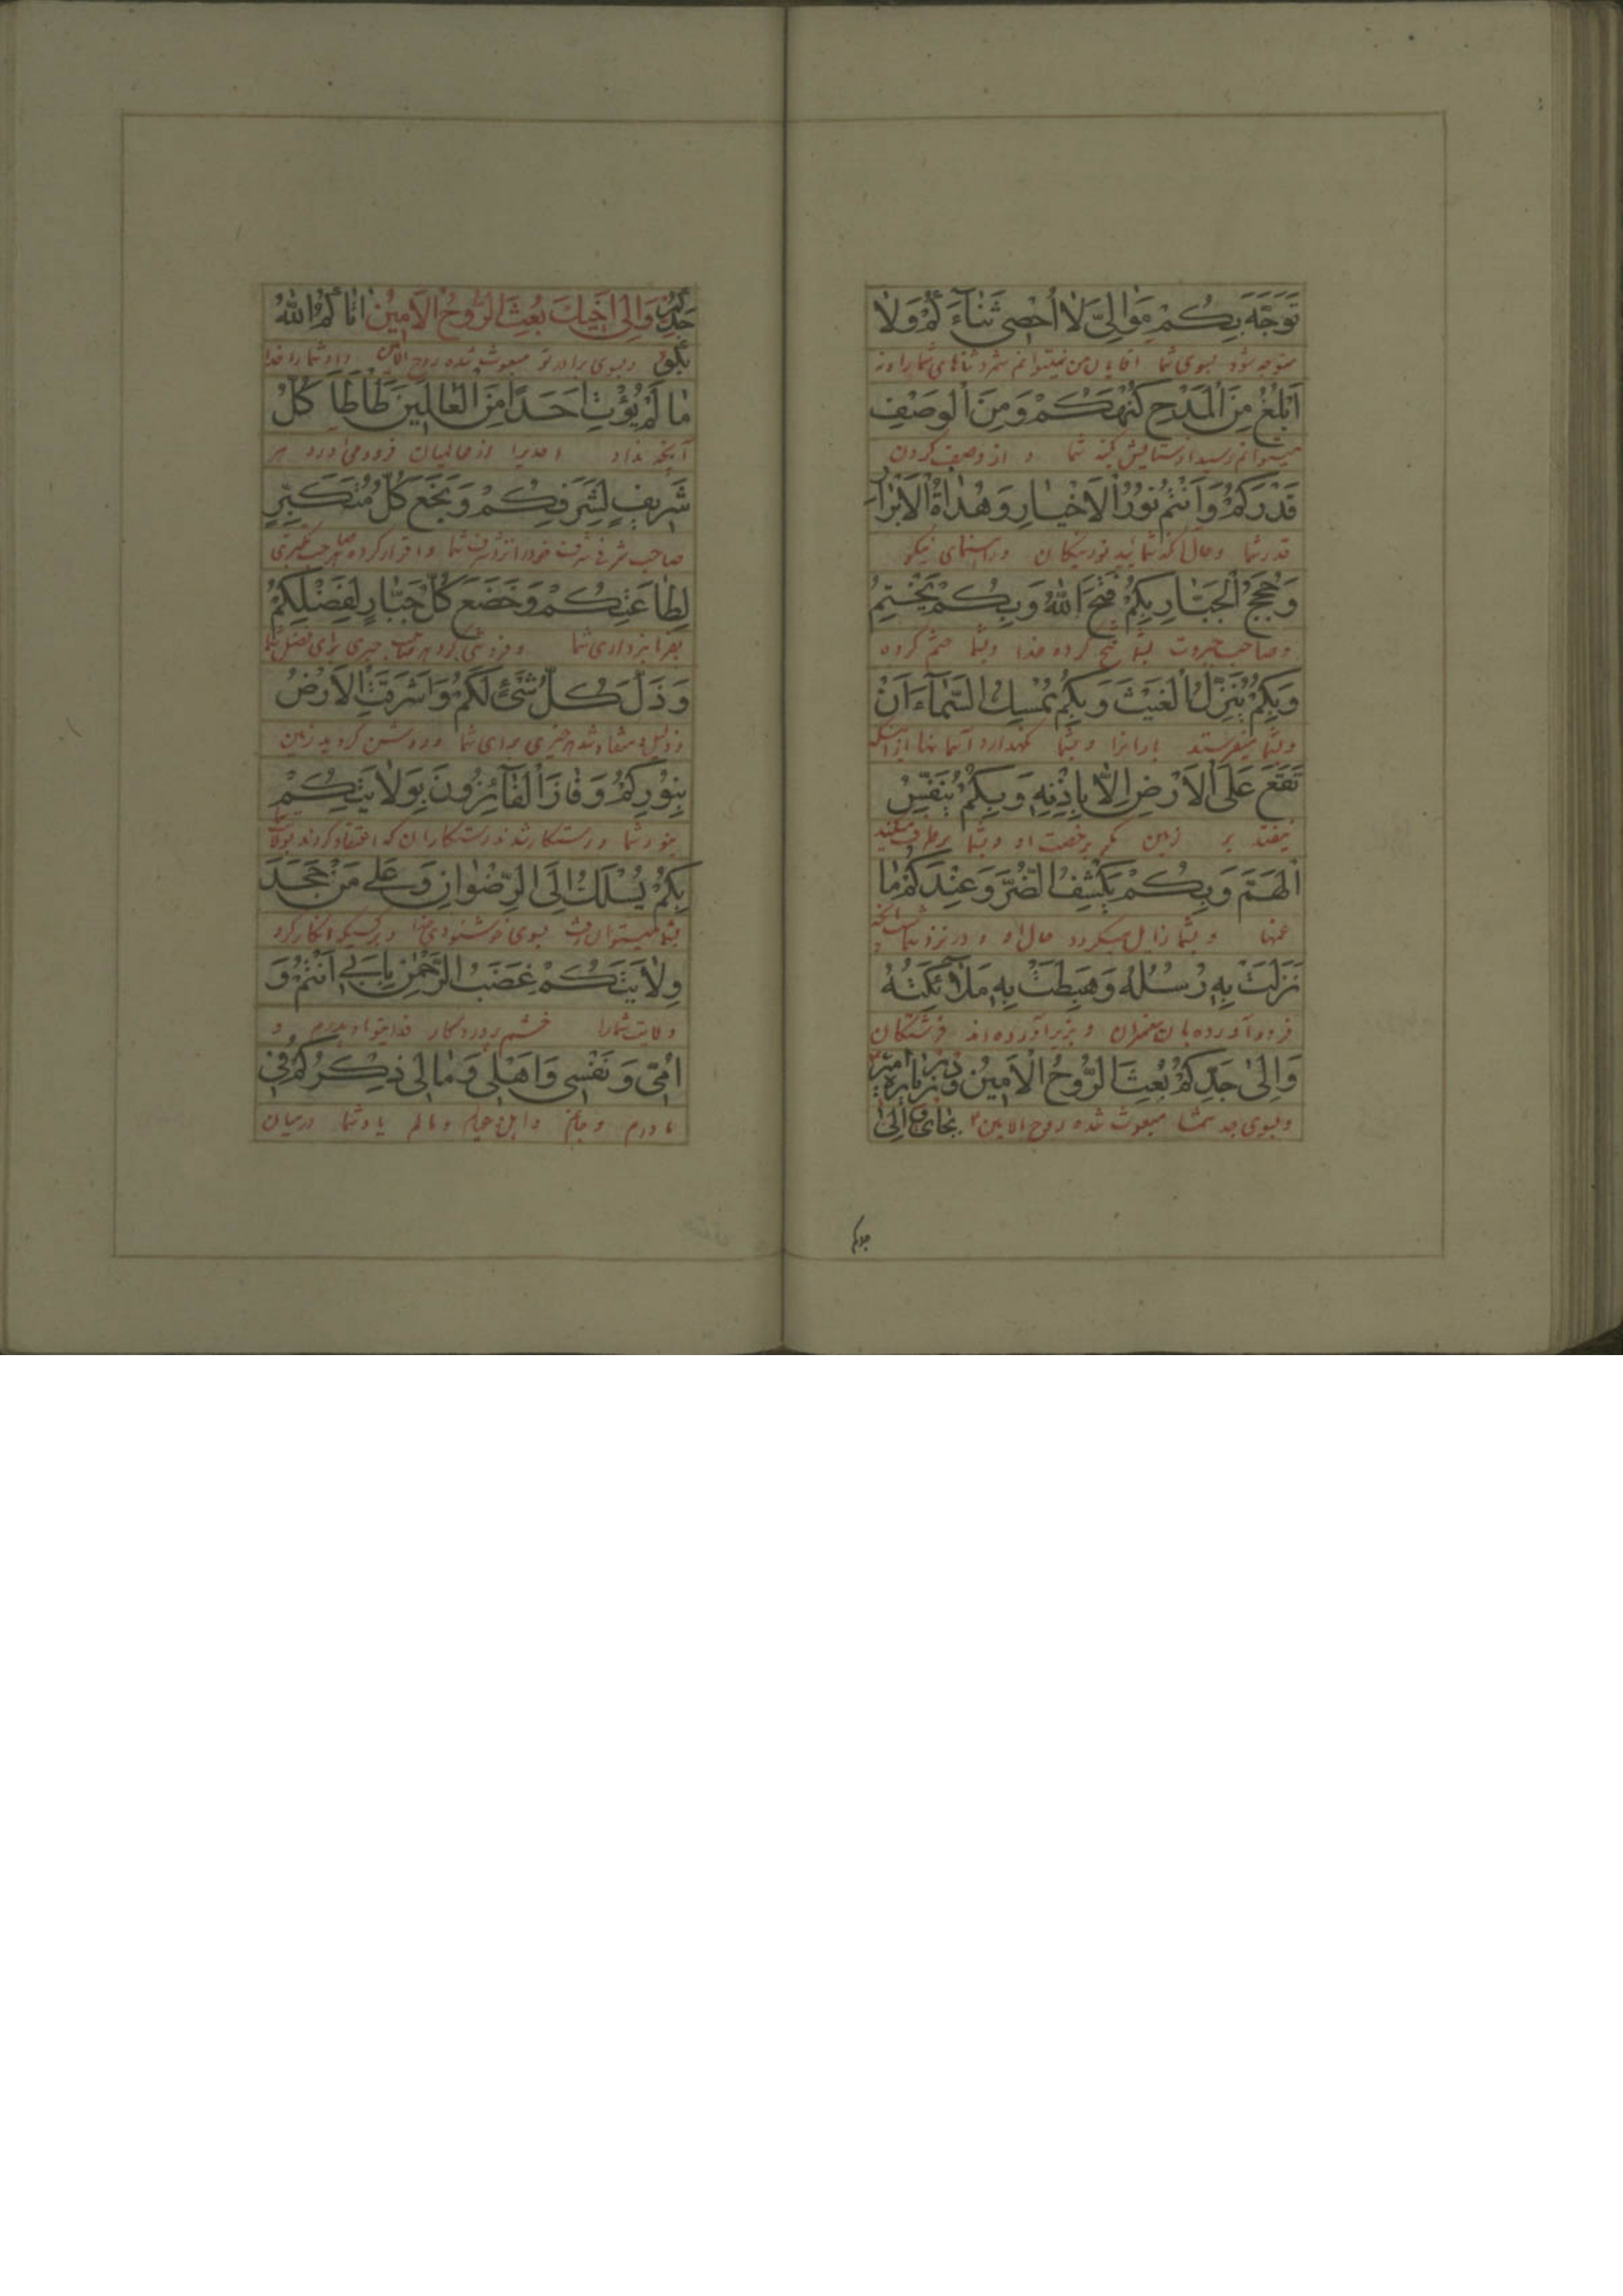 تَوَجَّهَ بِكُمْ مَوٰالِيَّ لٰا اُحْصي ثَنٰاءَكُمْ وَلٰا
متوجه شود بسوی شما آقایان من نمیتوانم شمرد ثناهای شما را و نه
اَبْلُغُ مِنَ الْمَدْحِ كُنْهَكُمْ وَمِنَ الْوَصْفِ
میتوانم رسید از ستایش کنه شما و از وصف کردن
قَدْرَكُمْ وَاَنْتُمْ نُورُ الْاَخْيٰارِ وَهُدٰاةُ الْاَبْرٰارِ
قدر شما و حال آنکه شمائید نور نیکان و راهنمای نیکو
وَحُجَجُ الْجَبّٰارِ بِكُمْ فَتَحَ اللّٰهُ وَبِكُمْ يَخْتِمُ
و صاحب جبروت بشما فتح کرده خدا و بشما ختم کرده
وَبِكُمْ يُنَزِّلُ الْغَيْثَ وَبِكُمْ يُمْسِكُ السَّمٰاءَ اَنْ
و بشما میفرستد بارانرا و بشما نگهدارد آسمانها از اینکه
تَقَعَ عَلَى الْاَرْضِ اِلّٰا بِاِذْنِهِ وَبِكُمْ يُنَفِّسُ
بیفتد بر زمین مگر برخصت او و بشما برطرف میکند
الْهَمَّ وَبِكُمْ يَكْشِفُ الضُّرَّ وَعِنْدَكُمْ مٰا
غمها و بشما زایل میگردد و در نزد شماست آنچه
نَزَلَتْ بِهِ رُسُلُهُ وَهَبَطَتْ بِهِ مَلٰائِكَتُهُ
فرود آورده بآن پیغمبران و بزیر آورده‌اند فرشتگان
وَاِلىٰ جَدِّكُمْ بُعِثَ الرُّوحُ الْاَمينُ
و بسوی جد شما مبعوث شده روح الامین بجای وَاِلىٰ
جَدِّكُمْ وَاِلىٰ اَخيكَ بُعِثَ الرُّوحُ الْاَمينُ اٰتٰاكُمُ اللّٰهُ
بگوی و بسوی برادر تو مبعوث شده روح الامین داد شما را خدا
مٰا لَمْ يُؤْتِ اَحَدًا مِنَ الْعٰالَمينَ طَأْطَأَ كُلُّ
آنچه نداد احدیرا از عالمیان فرود می‌آورد هر
شَريفٍ لِشَرَفِكُمْ وَبَخَعَ كُلُّ مُتَكَبِّرٍ
صاحب شرفی شرف خود را نزد شرف شما و اقرار کرده هر صاحب تکبری
لِطٰاعَتِكُمْ وَخَضَعَ كُلُّ جَبّٰارٍ لِفَضْلِكُمْ
بفرمانبرداری شما و فروتنی کرد هر صاحب جبری برای فضل شما
وَذَلَّ كُلُّ شَيْءٍ لَكُمْ وَاَشْرَقَتِ الْاَرْضُ
و ذلیل و منقاد شد هر چیزی برای شما و روشن گردید زمین
بِنُورِكُمْ وَفٰازَ الْفٰائِزُونَ بِوَلٰايَتِكُمْ
بنور شما و رستگار شدند رستگاران که اعتقاد کردند بولایت شما
بِكُمْ يُسْلَكُ اِلَى الرِّضْوٰانِ وَعَلىٰ مَنْ جَحَدَ
بشما میتوان رفت بسوی خوشنودی خدا و بر کسیکه انکار کرد
وِلٰايَتَكُمْ غَضَبُ الرَّحْمٰنِ بِاَبي اَنْتُمْ وَ
ولایت شما را خشم پروردگار فدای تو باد پدرم و
اُمّي وَنَفْسي وَاَهْلي وَمٰالي ذِكْرُكُمْ فِي
مادرم و جانم و اهل و عیالم و مالم یاد شما در میان
جدکم